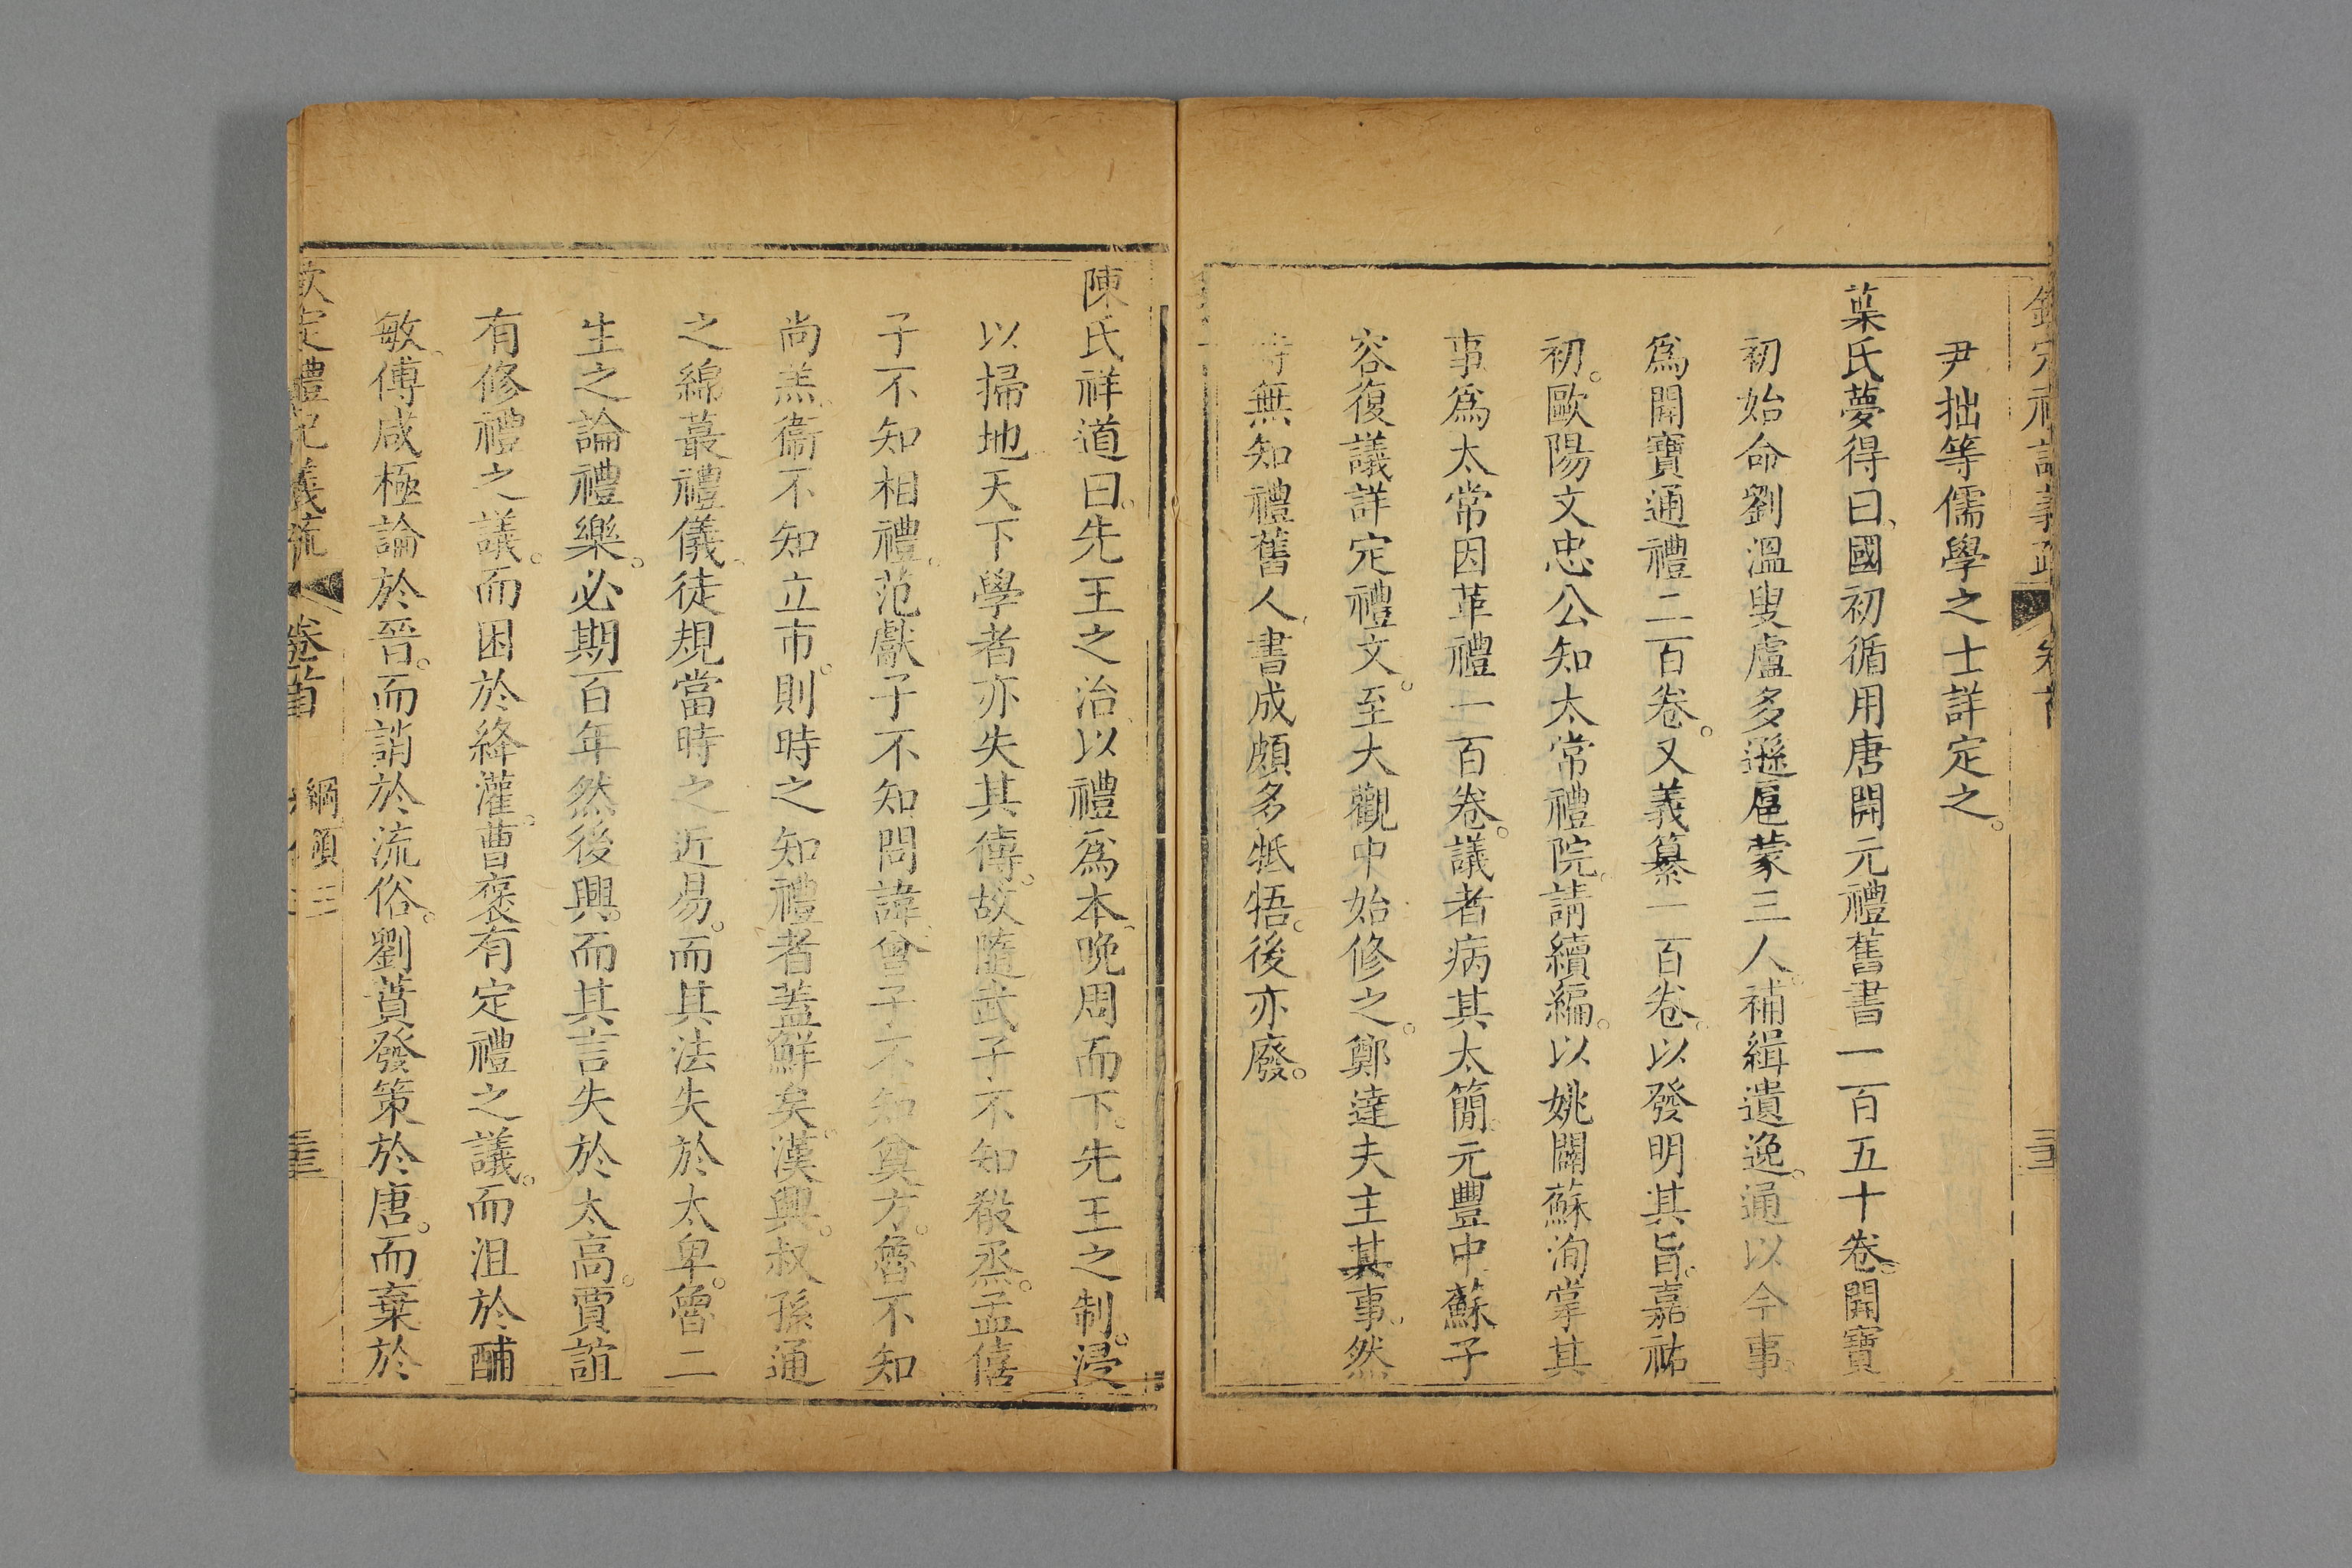 尹拙等儒學之士詳定之。
葉氏夢得曰、國初循用唐開元禮舊書一百五十卷。開寶
初始命劉溫叟盧多遜扈蒙三人。補緝遺逸。通以今事。
爲開寶通禮二百卷。又義纂一百卷。以發明其旨。嘉祐
初。歐陽文忠公知太常禮院。請續編。以姚闢蘇洵掌其
事爲太常因革禮一百卷。議者病其太簡。元豐中蘇子
容復議詳定禮文。至大觀中始修之。鄭達夫主其事、然
時無知禮舊人、書成頗多牴牾。後亦廢。
陳氏祥道曰。先王之治、以禮爲本、晚周而下。先王之制。浸
以掃地天下學者亦失其傳。故隨武子不知殽烝。孟僖
子不知相禮。范獻子不知問諱、曾子不知奠方。魯不知
尚羔、衞不知立市。則時之知禮者蓋鮮矣。漢興。叔孫通
之綿蕞禮儀、徒規當時之近易。而其法失於太卑。魯二
生之論禮樂。必期百年然後興。而其言失於太高。賈誼
有修禮之議。而困於絳灌。曹褒有定禮之議。而沮於酺
敏、傅咸極論於晉。而誚於流俗。劉蕡發策於唐。而棄於
欽定禮記義疏 卷首 綱領三